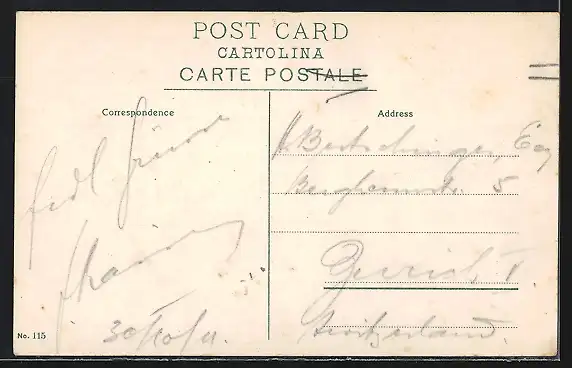 POST CARD
CARTOLINA
CARTE POSTALE
Correspondence
Address
fidl Grüsse
30/10/11.
H. Bertschinger, Esq
5
Zurich I
Switzerland
No. 115